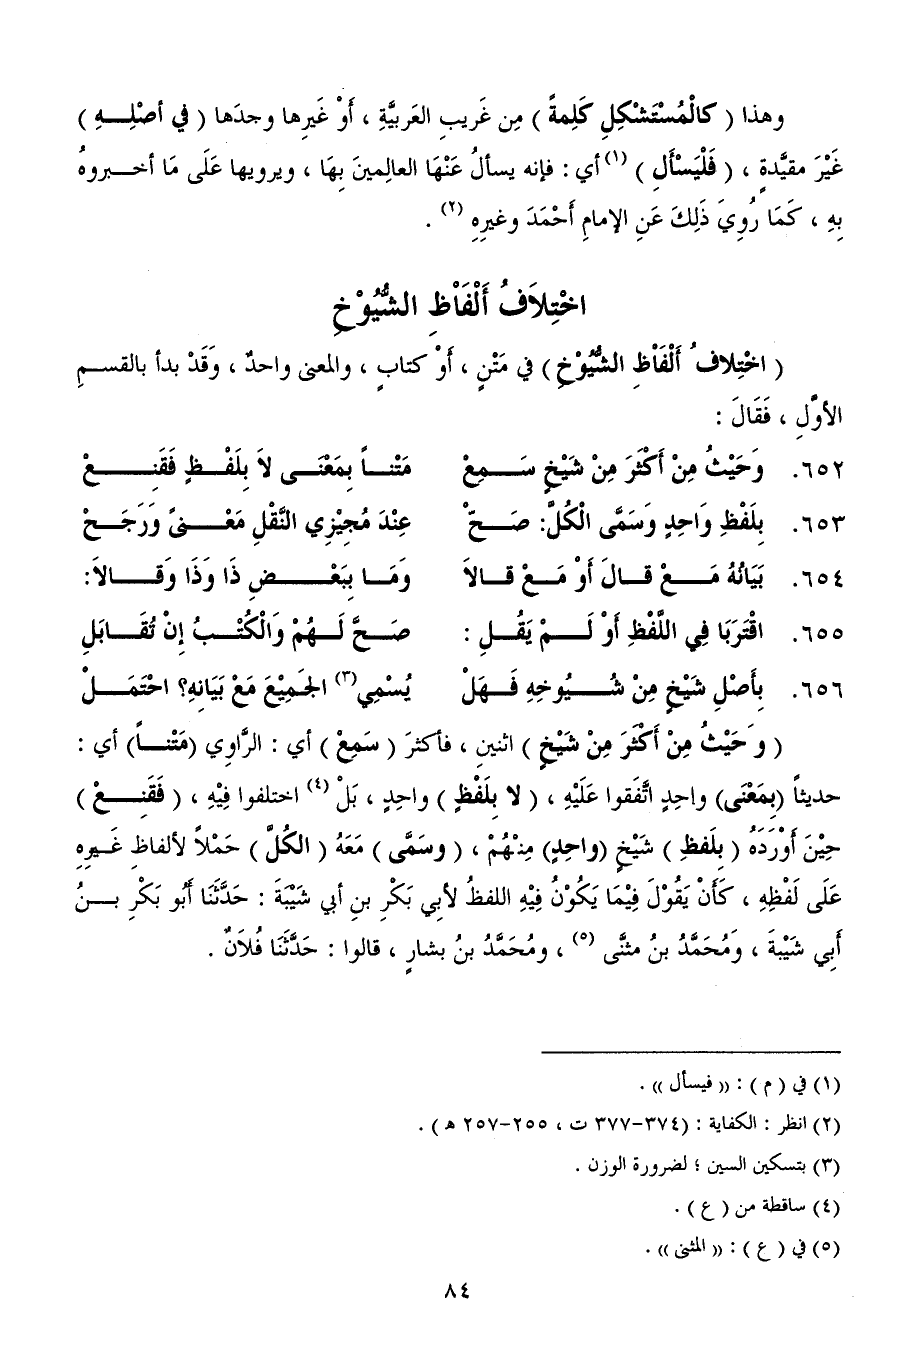 وهذا ( كالْمُسْتَشْكِلِ كَلِمةً ) مِن غَريبِ العَربيَّةِ ، أَوْ غَيرِها وجدَها ( في أصْلِهِ )
غَيْرَ مقيَّدةٍ ، ( فَلْيَسْأَلِ ) (١) أي : فإنه يسألُ عَنْهَا العالِمينَ بِهَا ، ويرويها عَلَى مَا أخبروهُ
بِهِ ، كَمَا رُوِيَ ذَلِكَ عَنِ الإمامِ أَحْمَدَ وغيرِهِ (٢) .
اخْتِلاَفُ أَلْفَاظِ الشُّيُوْخِ
( اخْتِلافُ أَلْفَاظِ الشُّيُوْخِ ) في مَتْنٍ ، أَوْ كتابٍ ، والمعنى واحدٌ ، وَقَدْ بدأ بالقسمِ
الأوَّلِ ، فَقَالَ :
٦٥٢. وَحَيْثُ مِنْ أَكْثَرَ مِنْ شَيْخٍ سَمِعْ مَتْناً بِمَعْنَى لاَ بِلَفْظٍ فَقَنِعْ
٦٥٣. بِلَفْظِ وَاحِدٍ وَسَمَّى الْكُلَّ: صَحّْ عِنْدَ مُجِيْزِي النَّقْلِ مَعْنىً وَرَجَحْ
٦٥٤. بَيَانُهُ مَعْ قالَ أَوْ مَعْ قالاَ وَمَا بِبَعْضِ ذَا وَذَا وَقَالاَ:
٦٥٥. اقْتَرَبَا فِي اللَّفْظِ أَوْ لَمْ يَقُلِ : صَحَّ لَهُمْ وَالْكُتْبُ إِنْ تُقَابَلِ
٦٥٦. بِأَصْلِ شَيْخٍ مِنْ شُيُوخِهِ فَهَلْ يُسْمِي(٣) الجَمِيْعَ مَعْ بَيَانِهِ؟ احْتَمَلْ
( وَحَيْثُ مِنْ أَكْثَرَ مِنْ شَيْخٍ ) اثنينِ ، فأكثرَ ( سَمِعْ ) أي : الرَّاوِي (مَتْناً) أي :
حديثاً (بِمَعْنَى) واحِدٍ اتَّفَقوا عَلَيْهِ ، ( لا بِلَفْظٍ ) واحِدٍ ، بَلْ (٤) اختلفوا فِيْهِ ، ( فَقَنِعْ )
حِيْنَ أَوْرَدَهُ ( بلَفظِ ) شَيْخٍ (واحِدٍ) مِنْهُمْ ، ( وسَمَّى ) مَعَهُ ( الكُلَّ ) حَمْلاً لألفاظِ غَيرِهِ
عَلَى لَفْظِهِ ، كَأَنْ يَقُوْلَ فِيْمَا يَكُوْنُ فِيْهِ اللفظُ لأبي بَكْرِ بنِ أبي شَيْبَةَ : حَدَّثَنَا أَبُو بَكْرِ بنُ
أَبِي شَيْبَةَ ، وَمُحَمَّدُ بنُ مثنَّى (٥) ، ومُحَمَّدُ بنُ بشارٍ ، قالوا : حَدَّثَنَا فُلاَنٌ .
(١) في ( م ) : (( فيسأل )) .
(٢) انظر : الكفاية : (٣٧٤-٣٧٧ ت ، ٢٥٥-٢٥٧ هـ ) .
(٣) بتسكين السين ؛ لضرورة الوزن .
(٤) ساقطة من ( ع ) .
(٥) في ( ع ) : (( المثنى )) .
٨٤